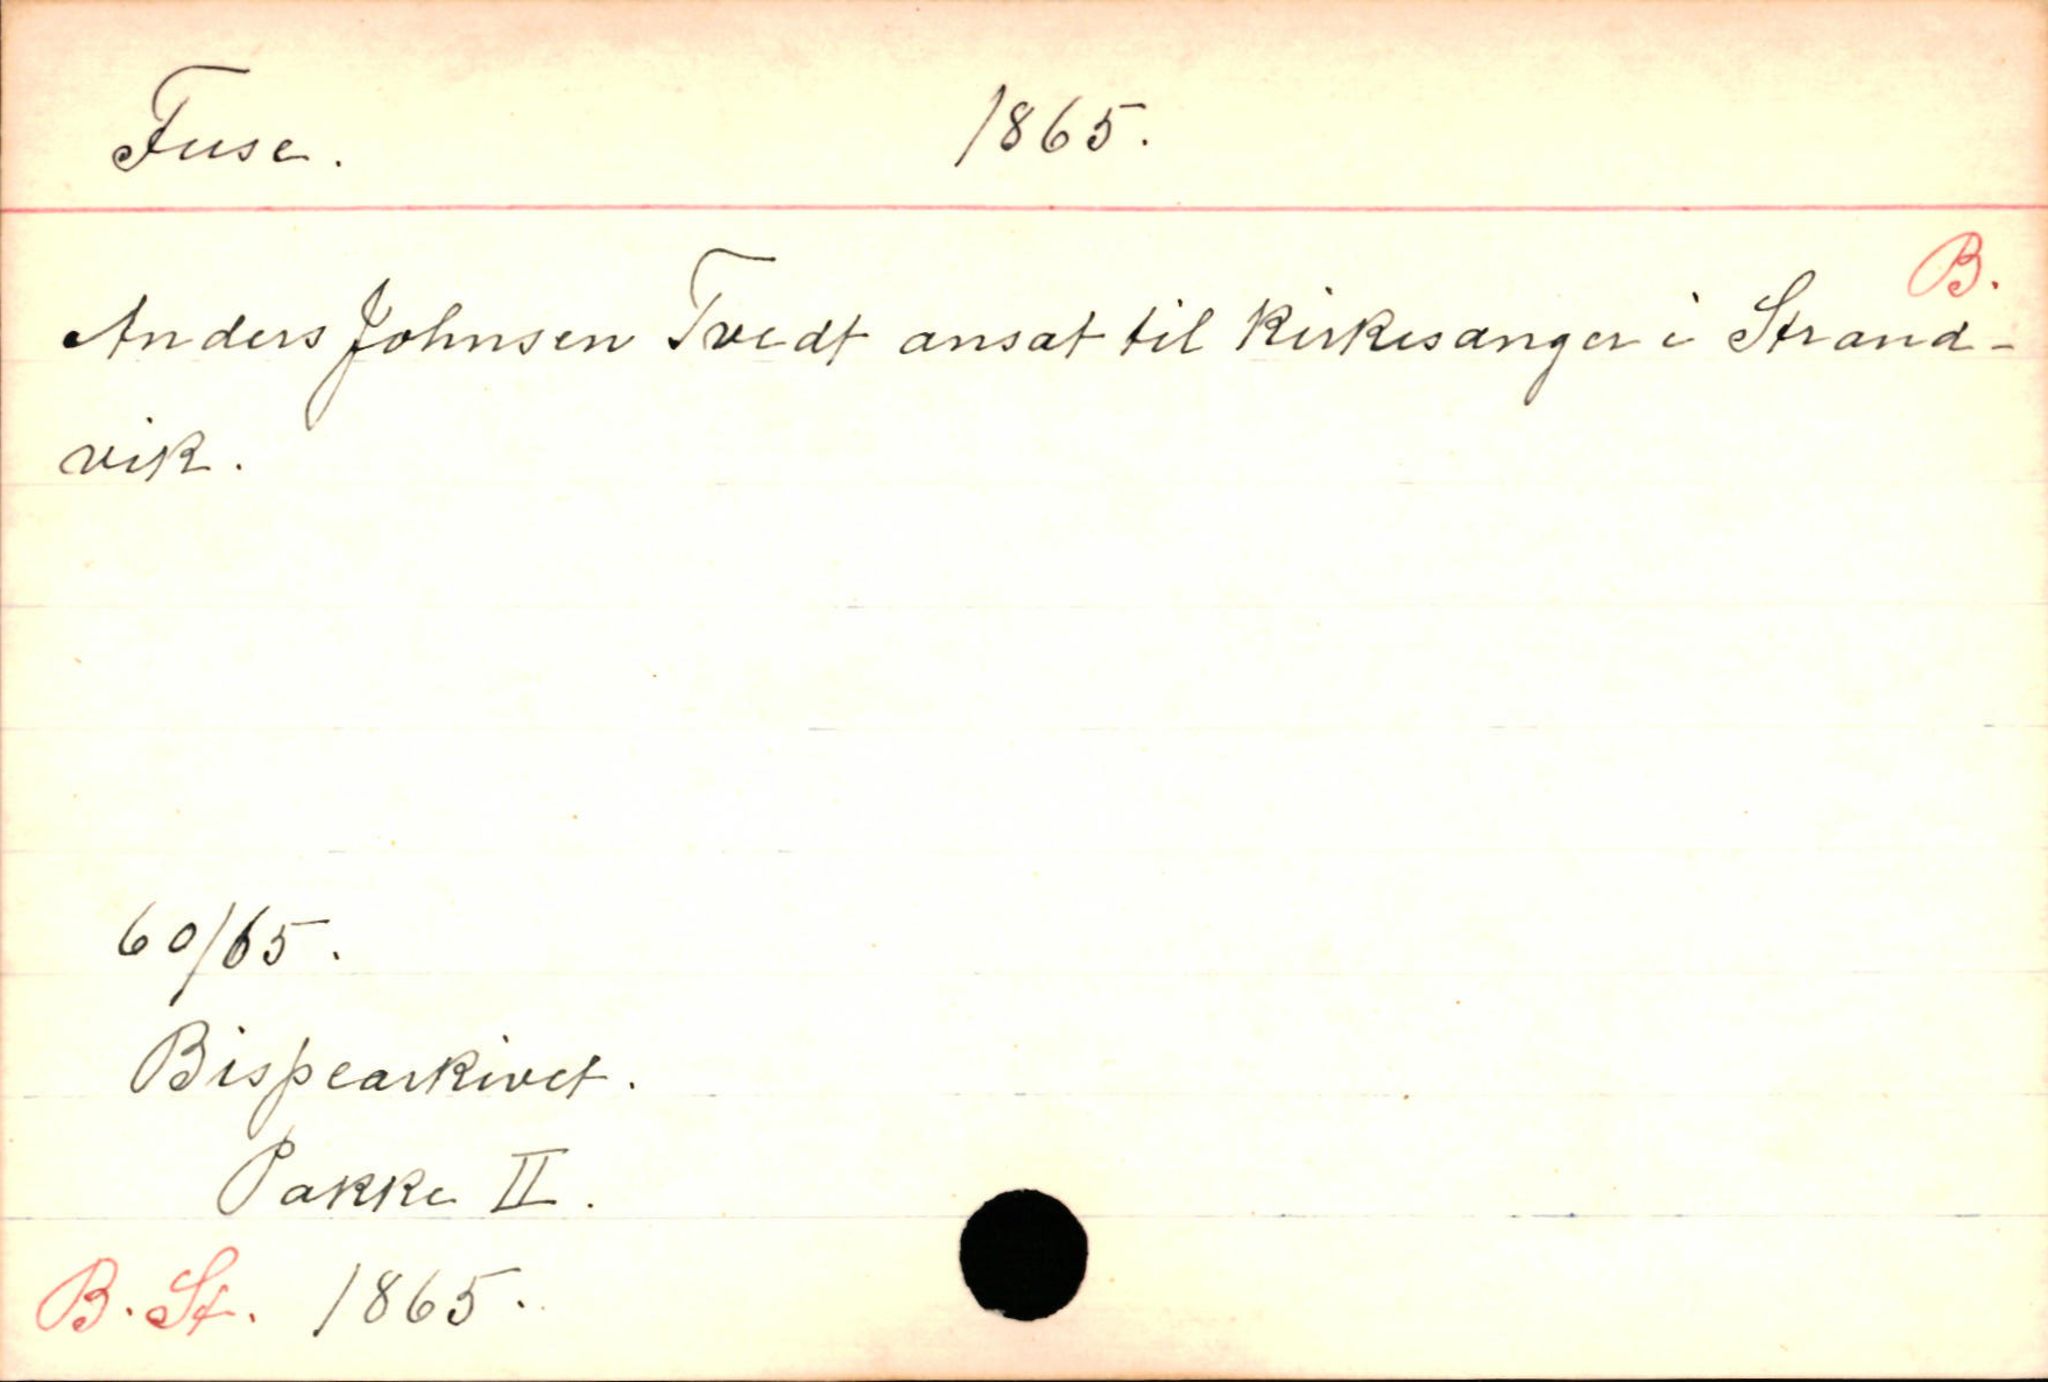 Fuse. 1865.
B.
Anders Johnsen Tvedt ansat til kirkesanger i Strand-
vik.
60/65.
Bispearkivet.
Pakke II.
B. St. 1865.